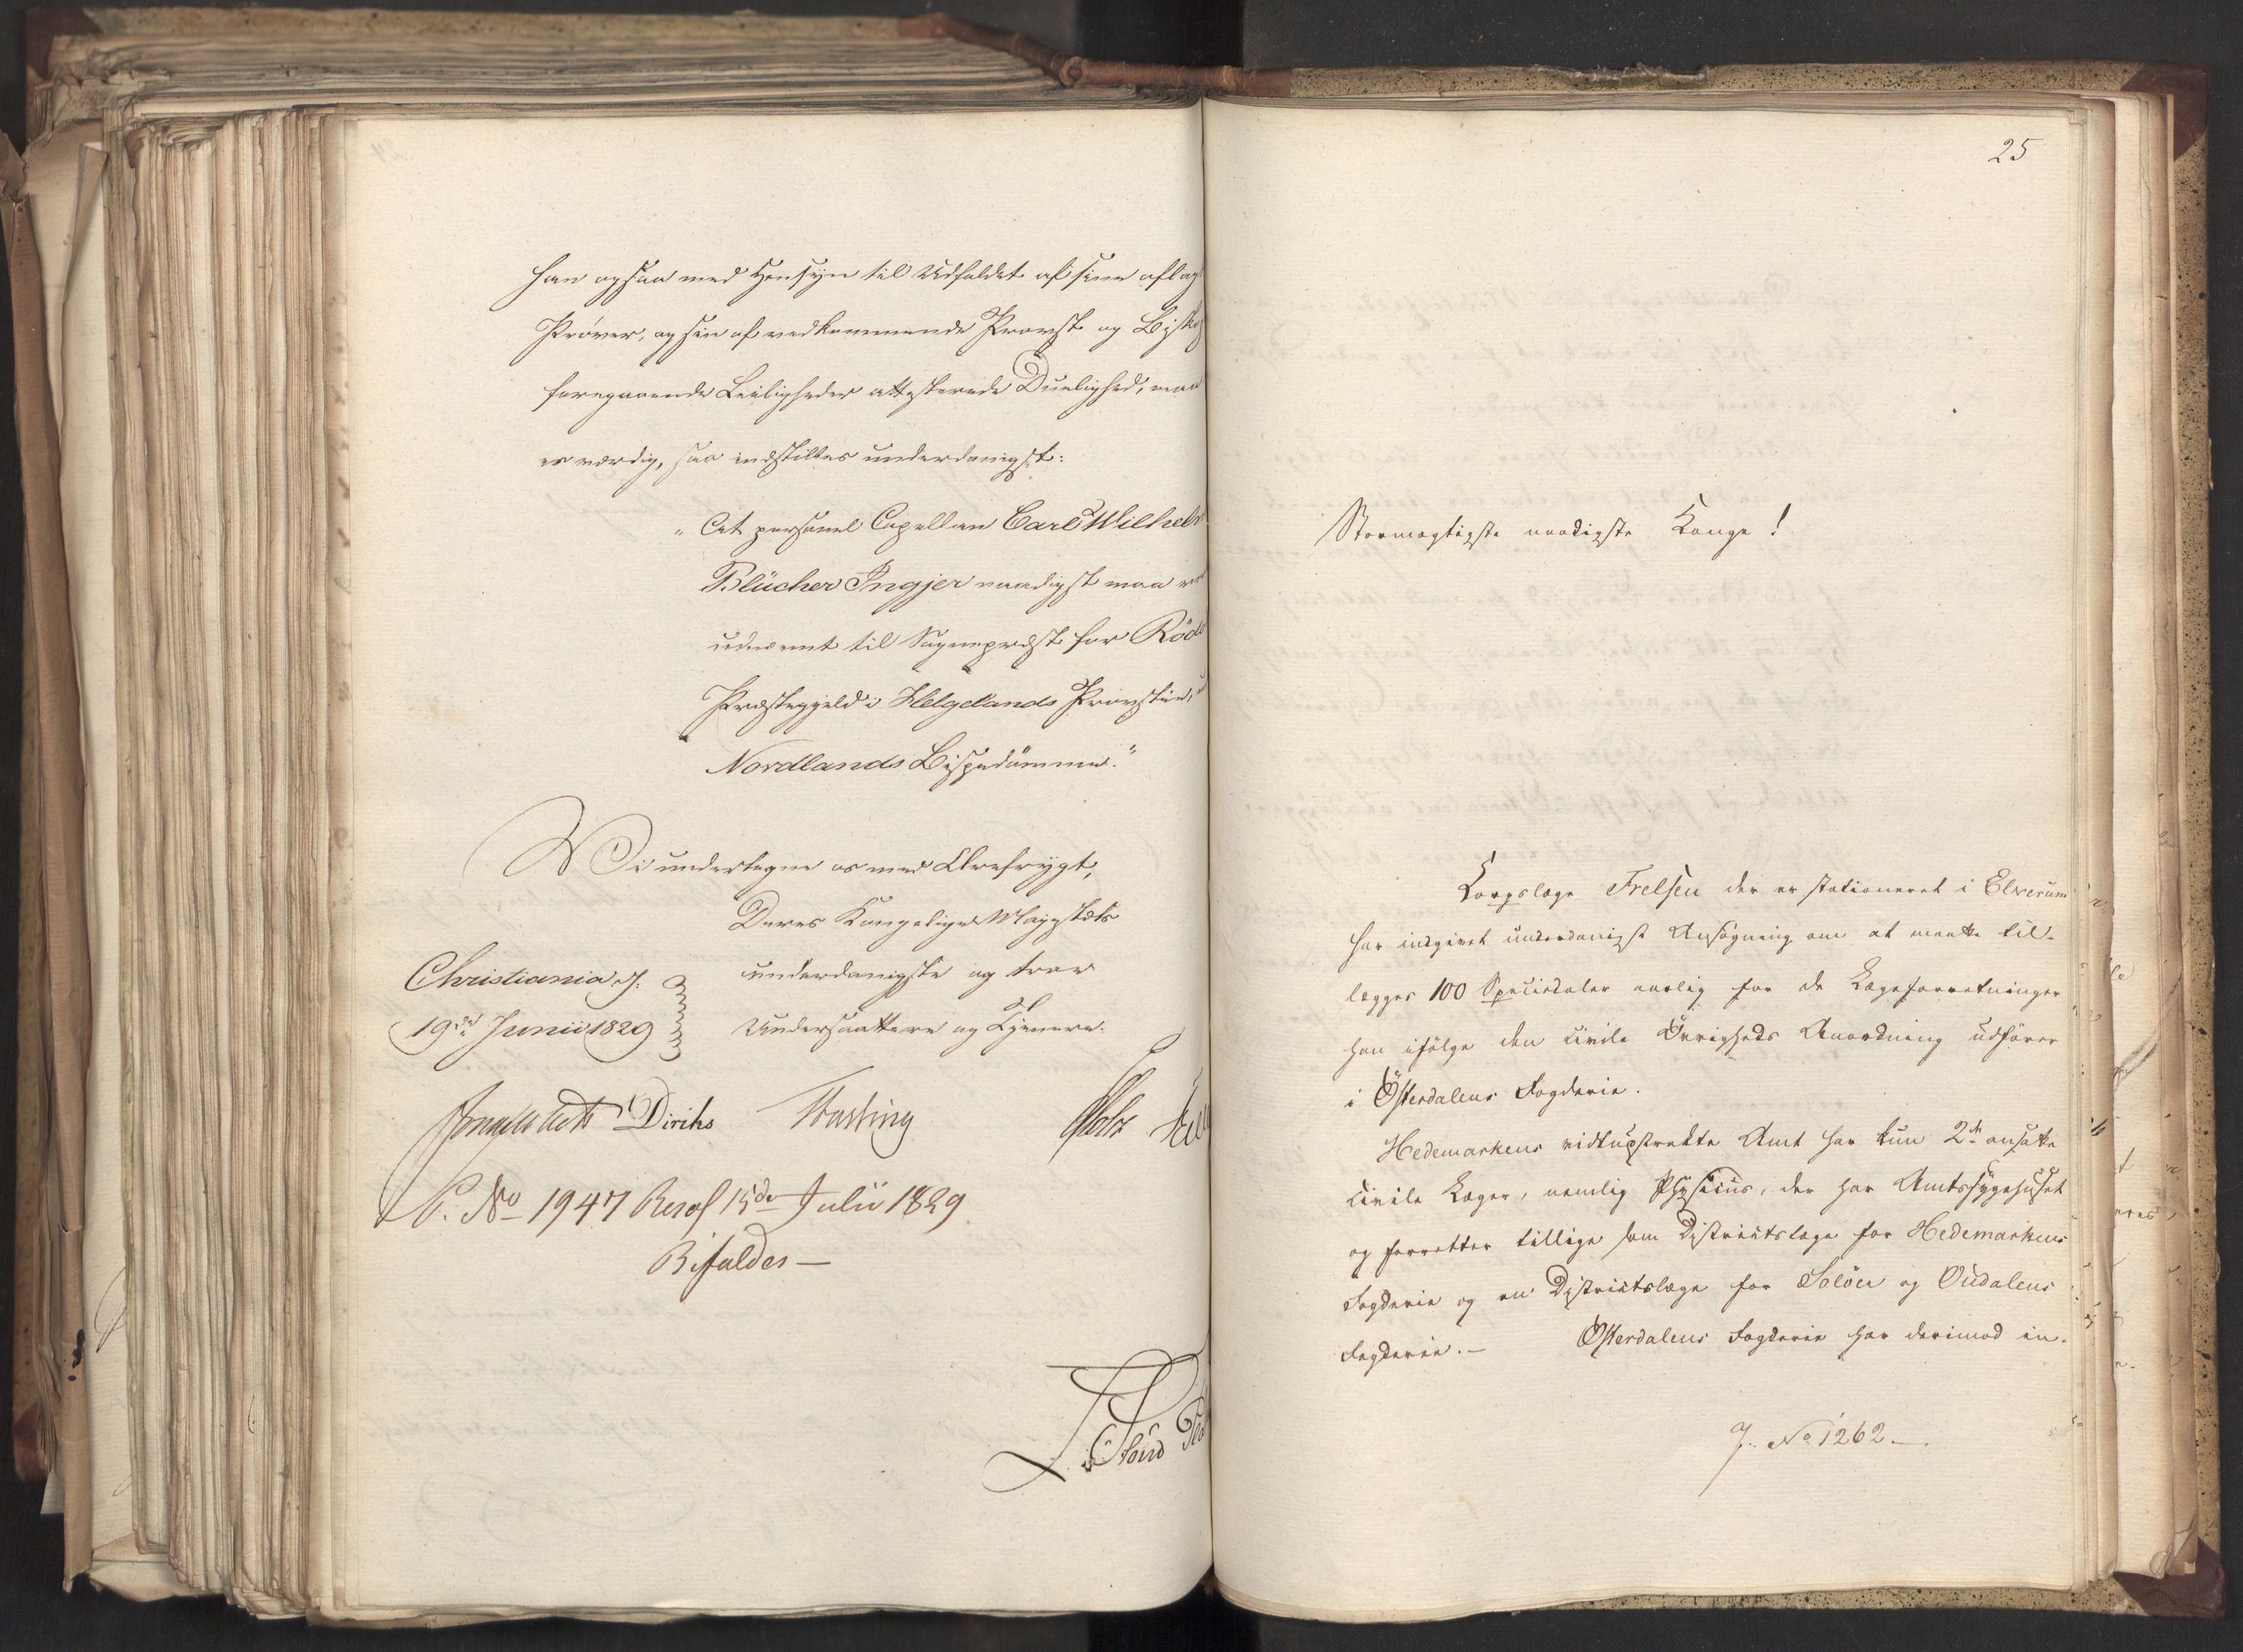 han ogsaa med Hensyn til Udfaldet af sine aflag
Prøver, og sin af vedkommende Provst og Bisko
foregaaende Leiligheder attesterede Duelighed, maa
er værdig, saa indstilles underdanigst:
"At personel Capellan Carl Wilhelm
Blücher Ingjer naadigst maa vor
udnævnt til Sogneprest for Rödö
Præstegjeld i Helgelands Provstie,
Nordlands Bispedömme."
Vi undertegne os med Ærefrygt,
Deres Kongelige Majestæts
underdanigste og troe
Undersaattere og Tjenere.
Christiania d:
19de Junii 1829
Diriks
Holst
S. No 1947 Resol 15de Julii 1829
Bifaldes —
25
Stormægtigste naadigste Konge!
Korpslæge Frelsen der er stationeret i Elverum
har indgivet underdanigst Ansøgning om at maatte til-
lægges 100 Speciedaler aarlig for de Lægeforretninger
han ifölge den civile Övrigheds Anordning udförer
i Österdalens Fogderie.
Hedemarkens vidtudstrakte Amt har kun 2de ansatte
civile Læger, nemlig Physicus, der har Amtssygehuset
og forretter tillige som Districtslæge for Hedemarkens
Fogderie og en Districtslæge for Solöer og Oudalens
Fogderie. – Österdalens Fogderie har derimod in-
J. No 1262 —.